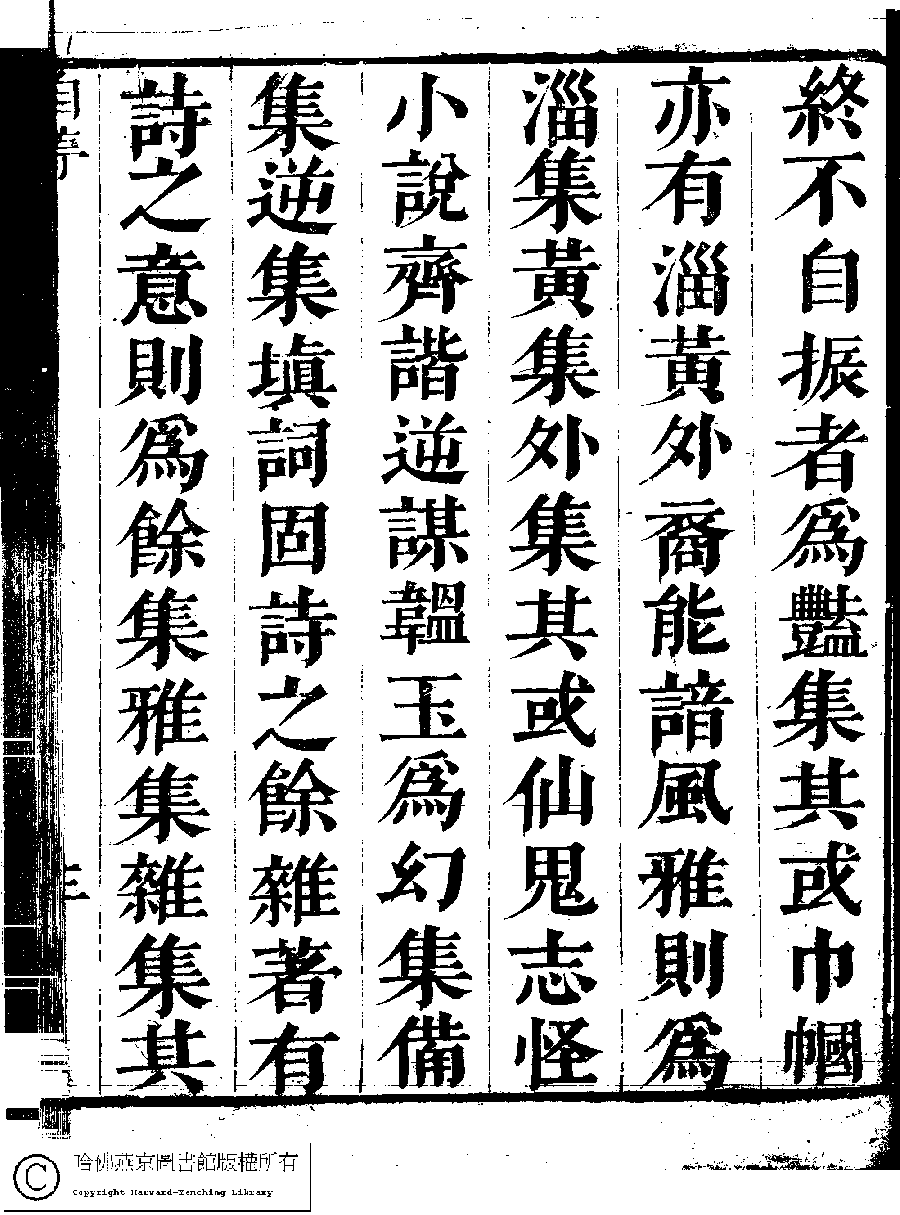 終不自振者爲豔集其或巾幗
亦有淄黃外裔能諳風雅則爲
淄集黃集外集其或仙鬼志怪
小說齊諧逆謀韞玉爲幻集備
集逆集塡詞固詩之餘雜著有
詩之意則爲餘集雅集雜集其
自序
三
哈佛燕京圖書館版權所有
Copyright Harvard-Yenching Library